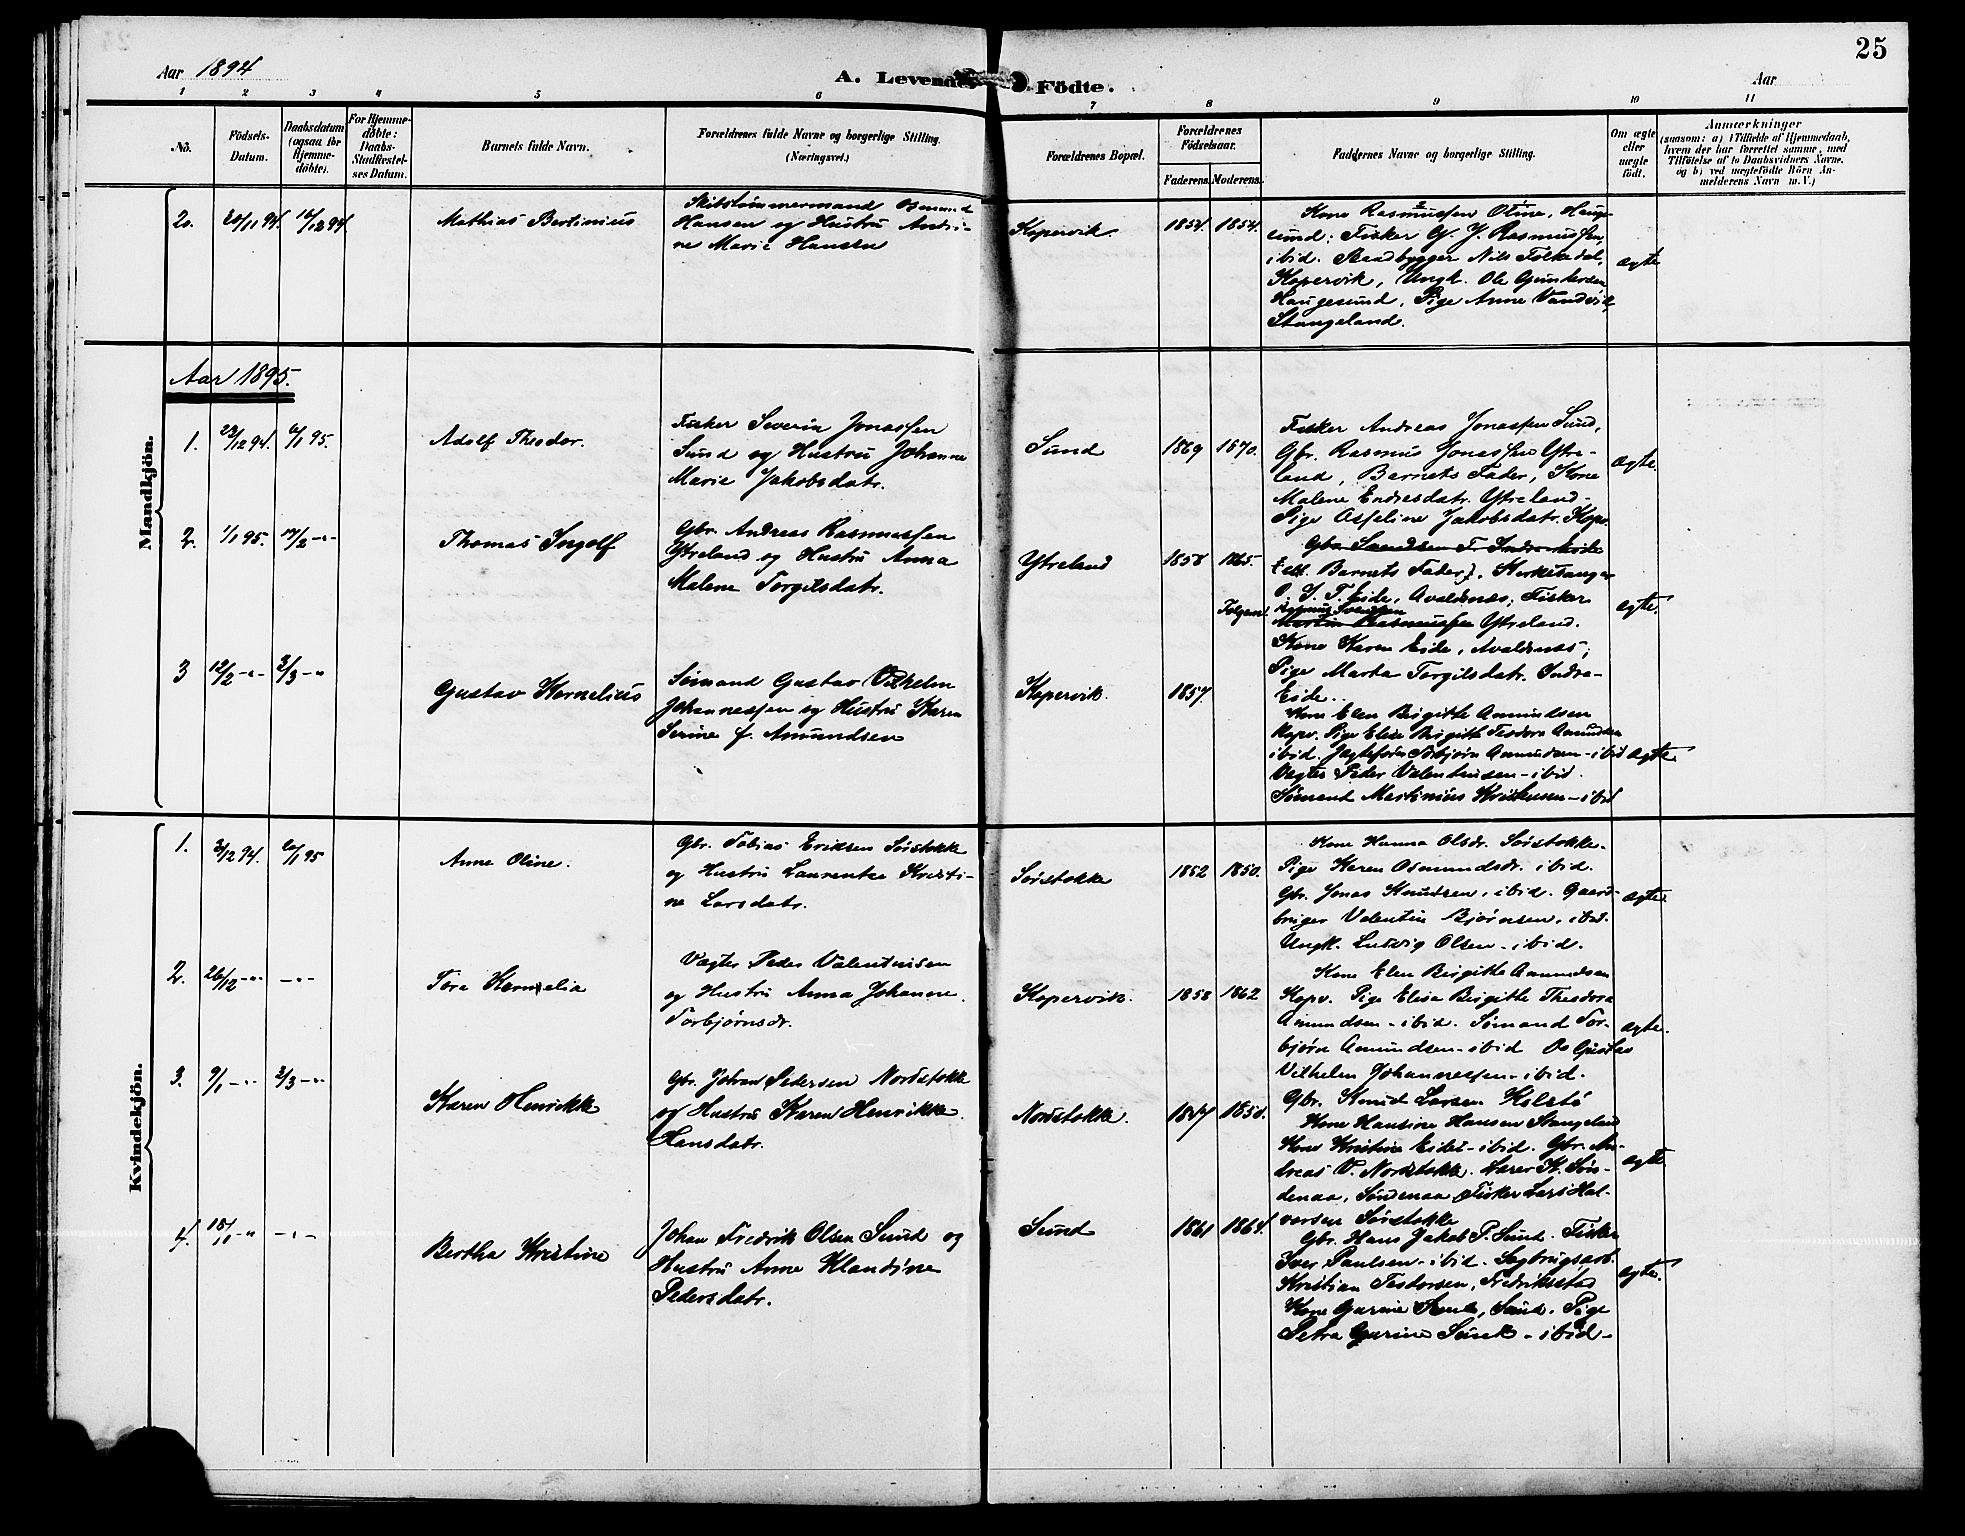 Aar 1894
A. Levende Födte.
Aar
25
1 2 3 4 5 6 7 8 9 10 11
No.
Födsels-
Datum.
Daabsdatum
(ogsaa for
Hjemme-
döbte).
For Hjemme-
döbte:
Daabs-
Stadfæstel-
ses Datum.
Barnets fulde Navn.
Forældrenes fulde Navne og borgerlige Stilling.
(Næringsvei.)
Forældrenes Bopæl.
Forældrenes
Födselsaar.
Faderens. Moderens.
Faddernes Navne og borgerlige Stilling.
Om ægte
eller
uægte
födt.
Anmærkninger
(saasom: a) i Tilfælde af Hjemmedaab,
hvem der har forrettet samme, med
Tilföielse af to Daabsvidners Navne,
og b) ved uægtefödte Börn An-
melderens Navn m. V.)
20. 20/11 94. 16/12 94
Mathias Bertinius
Skibstømmermand Osmund
Hansen og Hustru Andri-
ne Marie Hansen
Kopervik. 1854. 1854.
Kone Rasmussen Oline, Hauge-
sund; Fisker G. J. Rasmussen,
ibid. Baadbygger Nils Folkedal,
Kopervik, Ungk. Ole Gundersen
Haugesund, Pige Anne Vandvik,
Stangeland.
ægte
Aar 1895.
Mandkjön.
1. 23/12 94. 6/1 95.
Adolf Theodor.
Fisker Severin Jonassen
Sund og Hustru Johanne
Marie Jakobsdatr.
Sund 1869 1870.
Fisker Andreas Jonassen Sund,
Gbr. Rasmus Jonassen Ytre-
land, Barnets Fader, Kone
Malene Endresdatr. Ytreland.
Pige Oseline Jakobsdatr. Kopv.
ægte.
2. 1/1 95. 17/2 -"-
Thomas Ingolf
Gbr. Andreas Rasmussen
Ytreland og Hustru Anna
Malene Torgilsdatr.
Ytreland 1858 1865.
Gbr. Svendsen T. Indre Eide
Barnets Fader), Kirkesanger
O. S. T. Eide, Avaldsnes; Fisker
Rasmus Svensen
Martin Rasmussen Ytreland.
Kone Karen Eide, Avaldsnes;
Pige Marta Torgilsdatr. Indre-
Eide.
ægte.
3 12/2 -"- 3/3 -"-
Gustav Kornelius
Sømand Gustav Vilhelm
Johannessen og Hustru Karen
Serine f. Amundsen
Kopervik. 1857.
Kone Elen Birgitte Amundsen
Kopv. Pige Elise Birgith Teodora Amundsen
ibid. Jagtefører Torbjørn Amundsen - ibid
Vægter Peder Valentinsen - ibid.
Sømand Martinius Kristensen - ibid
ægte.
Kvindekjön.
1. 3/12 94. 6/1 95
Anne Oline.
Gbr. Tobias Eriksen Sørstokke
og Hustru Laurentse Kristi-
ne Larsdatr.
Sørstokke 1852 1850.
Kone Hanna Olsdr. Sørstokke.
Pige Karen Osmundsdr. ibid.
Gbr. Jonas Knudsen, ibid. Gaard-
bruger Valentin Bjørnsen, ibid.
Ungk. Ludvig Olsen - ibid.
ægte.
2. 26/12 -"- -"-
Tora Kornelia
Vægter Peder Valentinsen
og Hustru Anna Johanne
Torbjørnsdr.
Kopervik. 1858 1862
Kone Elen Birgitte Amundsen
Kopv. Pige Elisa Birgitte Theodora
Amundsen - ibid. Sømand Tor-
bjørn Amundsen - ibid Os Gustav
Vilhelm Johannessen - ibid.
ægte.
3. 9/1 -"- 3/3 -"-
Karen Henrikke
Gbr. Johan Pedersen Nordstokke
og Hustru Karen Henrikke
Hansdatr.
Nordstokke. 1847 1850.
Gbr. Knud Larsen Kolstø
Kone Hansine Hansen Stangeland
Kone Kristine Eidet - ibid. Gbr. An-
dreas V. Nordstokke. Lærer K. Søn-
denaa, Søndenaa Fisker Lars Hal-
vorsen Sørstokke
ægte
4. 18/1 -"- -"-
Bertha Kristine
Johan Fredrik Olsen Sund og
Hustru Anne Klandine
Pedersdatr.
Sund 1861 1864.
Gbr. Hans Jakob P. Sund. Fisker
Iver Paulsen - ibid. Sagbrugsarb.
Kristian Teodorsen, Fredrikstad
Kone Gurine Sund, Sund. Pige
Petra Gurine Sund - ibid -
ægte.